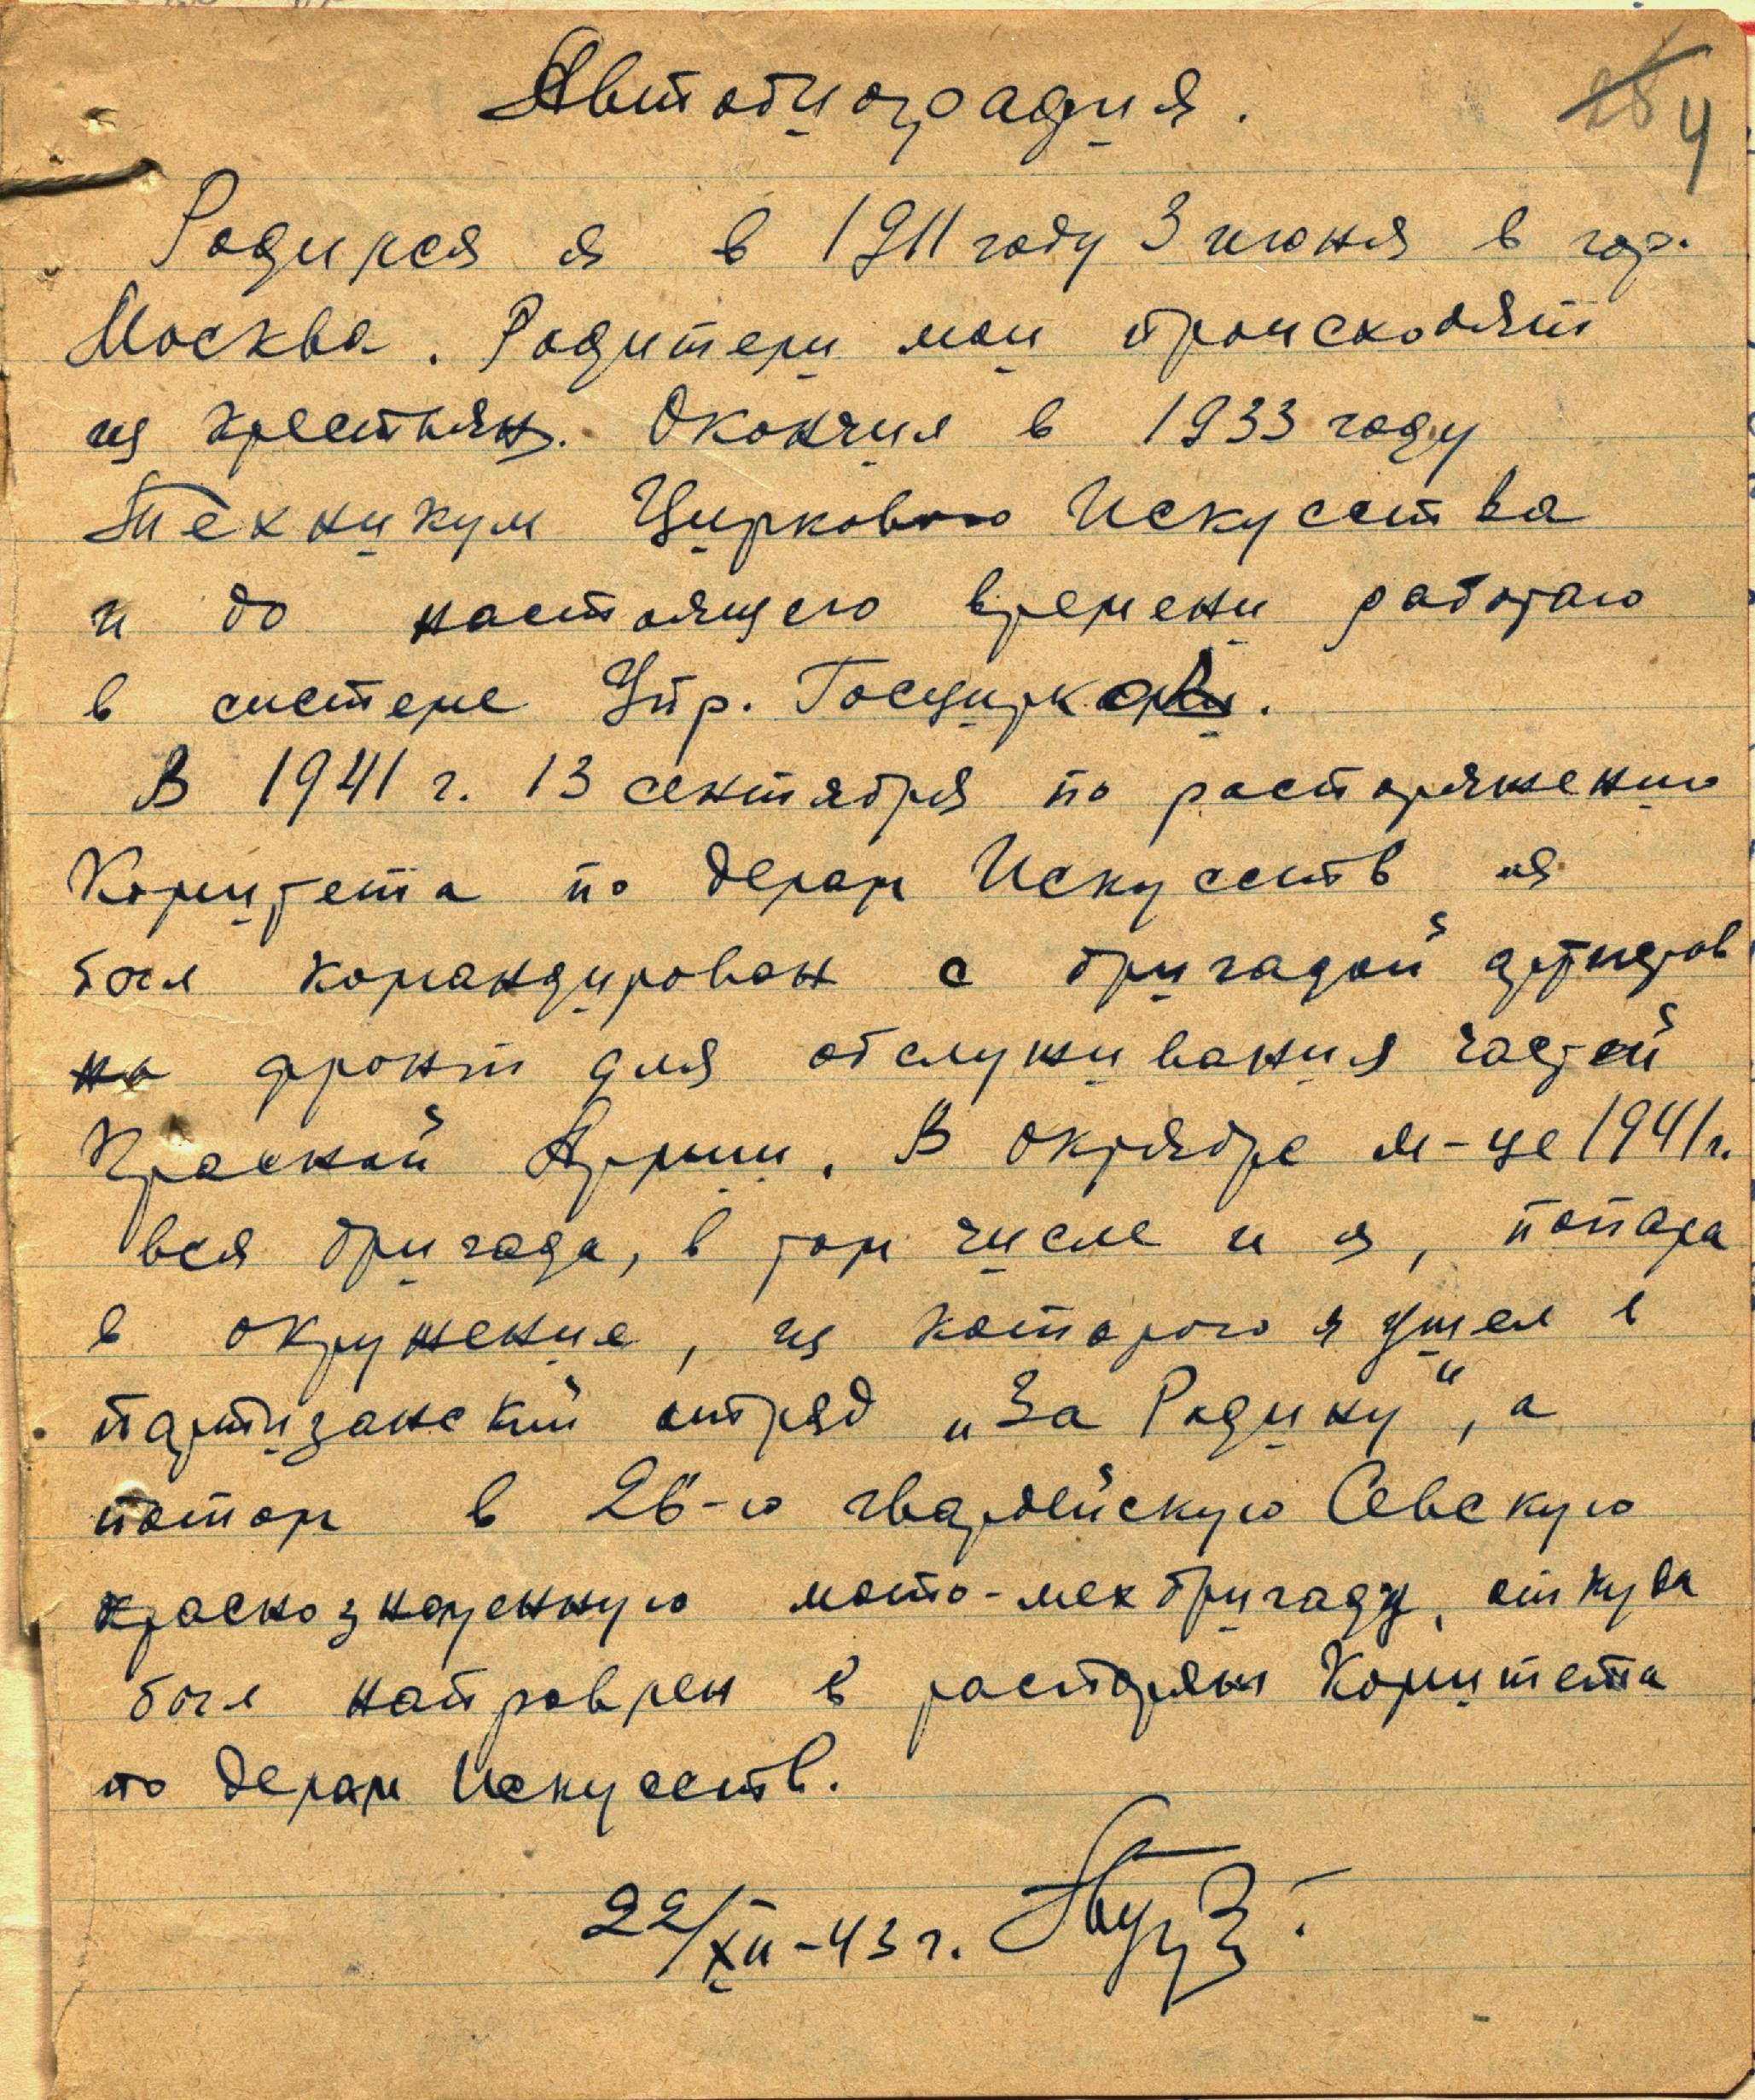 Автобиография.
4
Родился я в 1911 году 3 июня в гор.
Москва. Родители мои происходят
из крестьян. Окончил в 1933 году
Техникум Циркового Искусства
и до настоящего времени работаю
в системе Упр. Госцирков.
В 1941 г. 13 сентября по распоряжению
Комитета по делам Искусств я
был командирован с бригадой артистов
на фронт для обслуживания частей
Красной Армии. В октябре м-це 1941 г.
вся бригада, в том числе и я, попала
в окружение, из которого я ушел в
партизанский отряд „За Родину", а
потом в 26-ю гвардейскую Севскую
краснознаменную мото-мехбригаду, откуда
был направлен в распоряж Комитета
по делам Искусств.
22/XII-43 г.